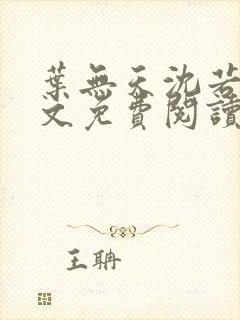 葉無天沈若
文免費閱讀
王聃